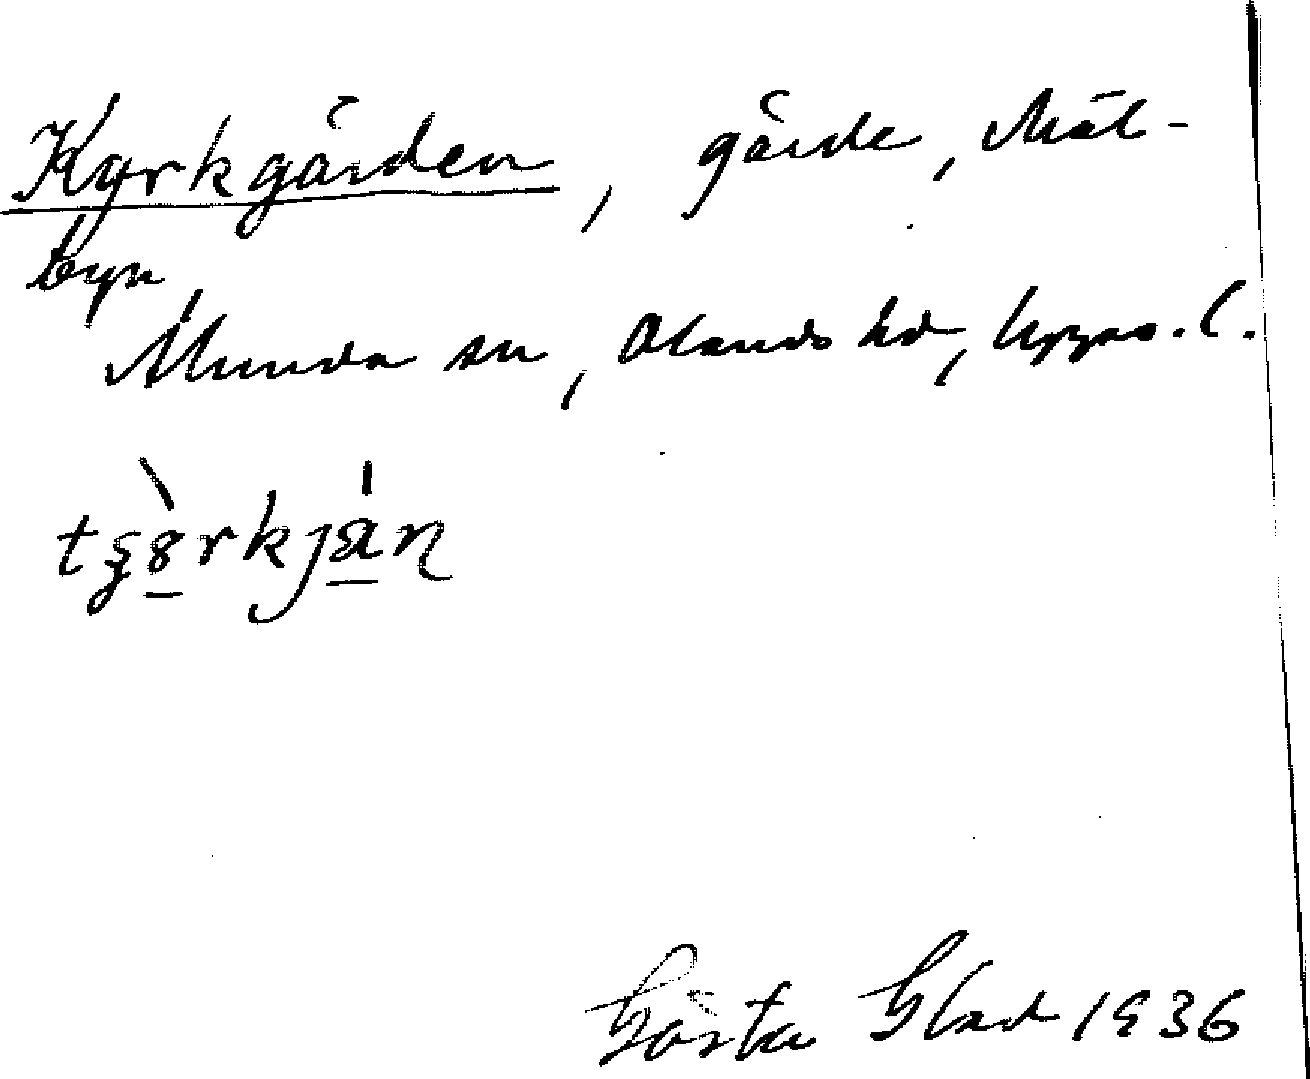 Kyrkgården, gärde, Mäl-
byn
Munda sn, Olands hd, Upps. l.
tʂörkjan
Gösta Blad 1936